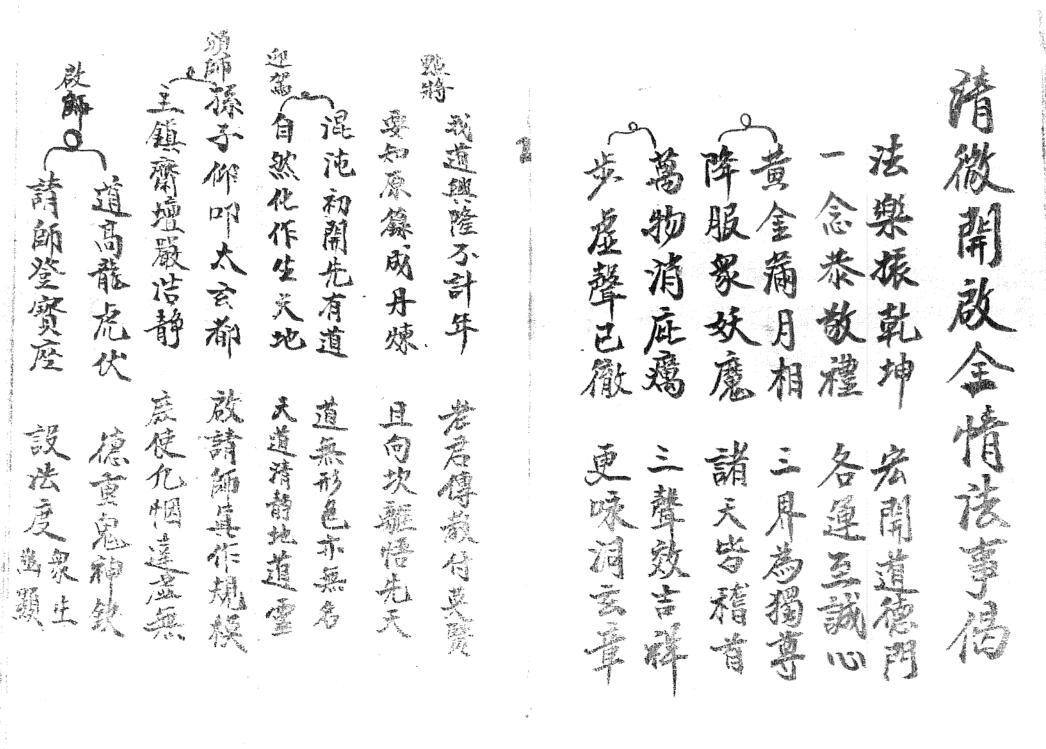 清微開啟全情法事偈
法樂振乾坤 宏開道德門
一念恭敬禮 各運至誠心
黃金滿月相 三界為獨尊
降服眾妖魔 諸天皆稽首
萬物消疵癘 三聲效吉祥
步虛聲已徹 更咏洞玄章
點將
我道興隆不計年 老君傳教付英賢
要知原籙成丹煉 且向坎離悟先天
迎駕
混沌初開先有道 道無形色亦無名
自然化作生天地 天道清靜地道靈
頌師
孫子仰叩太玄都 啟請師真作規模
主鎮齋壇嚴洁靜 辰使凢悃達虛無
啟師
道高龍虎伏 德重鬼神欽
請師登寶座 設法度眾生 顯